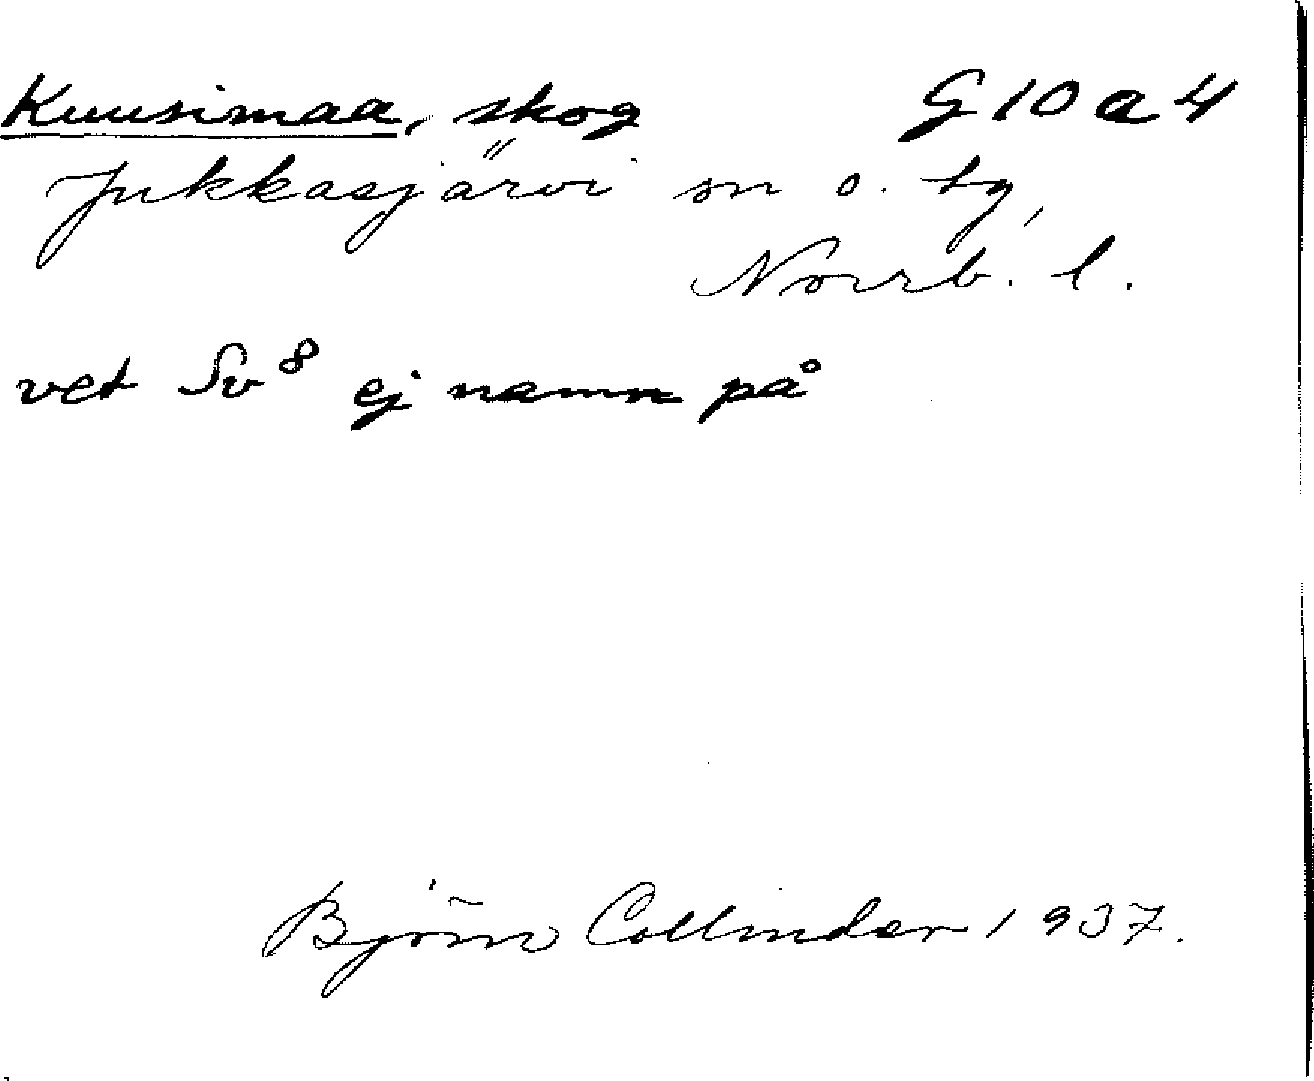 Kuusimaa, skog G10a4
Jukkasjärvi sn o. tg,
Norrb. l.
vet Sv⁸ ej namn på
Björn Collinder 1937.